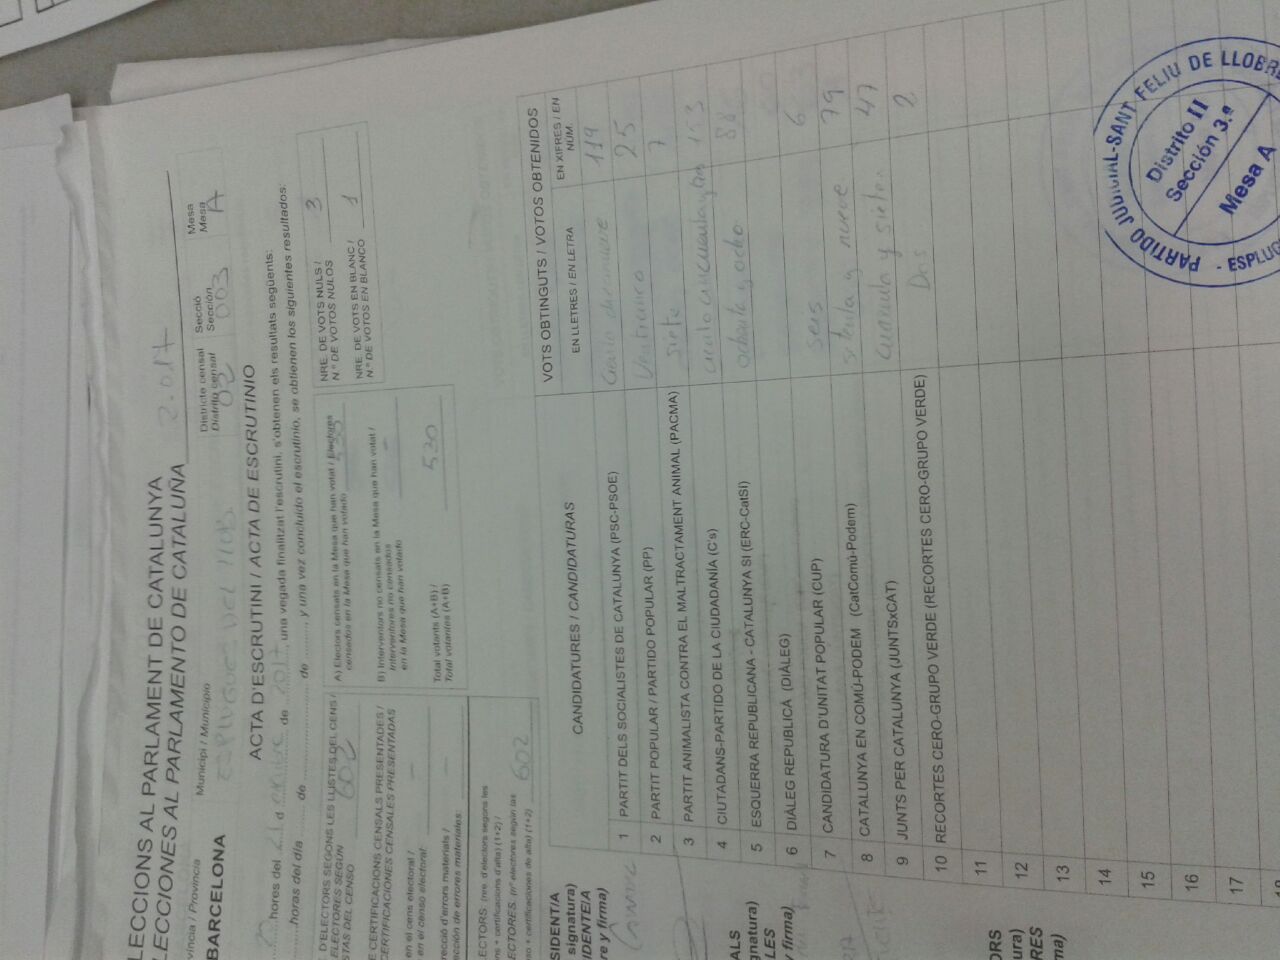 ELECCIONS AL PARLAMENT DE CATALUNYA
ELECCIONES AL PARLAMENTO DE CATALUÑA 2.017
Província / Provincia
BARCELONA
Municipi / Municipio
Districte censal
Distrito censal
02
Secció
Sección
003
Mesa
Mesa
A
ACTA D'ESCRUTINI / ACTA DE ESCRUTINIO
hores del 21 d de 2017, una vegada finalitzat l'escrutini, s'obtenen els resultats següents:
horas del día de de , y una vez concluido el escrutinio, se obtienen los siguientes resultados:
D'ELECTORS SEGONS LES LLISTES DEL CENS /
ELECTORES SEGÚN
LISTAS DEL CENSO
602
CERTIFICACIONS CENSALS PRESENTADES /
CERTIFICACIONES CENSALES PRESENTADAS
en el cens electoral /
en el censo electoral:
d'errors materials /
de errores materiales:
ELECTORS (nre. d'electors segons les
+ certificacions d'alta) (1+2) /
ELECTORES. (nº electores según las
+ certificaciones de alta) (1+2) 602
A) Electors censats en la Mesa que han votat / Electores
censados en la Mesa que han votado 530
B) Interventors no censats en la Mesa que han votat /
Interventores no censados
en la Mesa que han votado -
Total votants (A+B) /
Total votantes (A+B) 530
NRE. DE VOTS NULS /
N.º DE VOTOS NULOS 3
NRE. DE VOTS EN BLANC /
N.º DE VOTOS EN BLANCO 1
CANDIDATURES / CANDIDATURAS
VOTS OBTINGUTS / VOTOS OBTENIDOS
EN LLETRES / EN LETRA
EN XIFRES / EN NÚM.
1 PARTIT DELS SOCIALISTES DE CATALUNYA (PSC-PSOE) 119
2 PARTIT POPULAR / PARTIDO POPULAR (PP) Veinticinco 25
3 PARTIT ANIMALISTA CONTRA EL MALTRACTAMENT ANIMAL (PACMA) siete 7
4 CIUTADANS-PARTIDO DE LA CIUDADANÍA (C's) 153
5 ESQUERRA REPUBLICANA - CATALUNYA SI (ERC-CatSI) ochenta y ocho 88
6 DIÀLEG REPUBLICÀ (DIÀLEG)
7 CANDIDATURA D'UNITAT POPULAR (CUP) seis 6
8 CATALUNYA EN COMÚ-PODEM (CatComú-Podem) setenta y nueve 79
9 JUNTS PER CATALUNYA (JUNTSxCAT) cuarenta y siete 47
10 RECORTES CERO-GRUPO VERDE (RECORTES CERO-GRUPO VERDE) Dos 2
11
12
13
14
15
16
17
18
PARTIDO JUDICIAL-SANT FELIU DE LLOBRE
Distrito II
Sección 3.ª
Mesa A
- ESPLUG